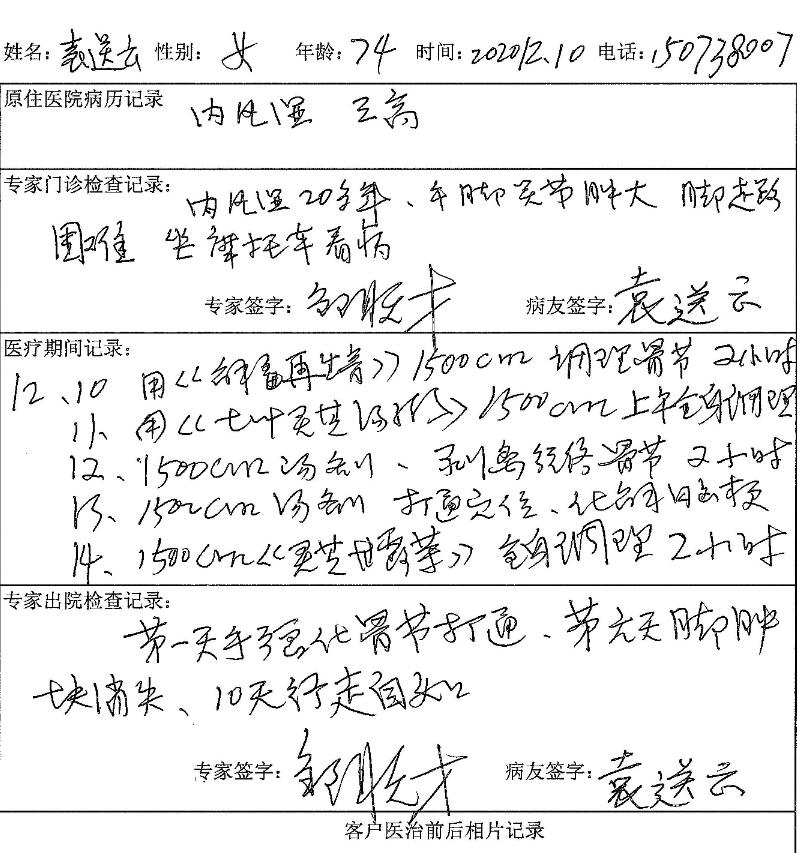 姓名：袁送云 性别：女 年龄：74 时间：202012.10 电话：150738007
原住医院病历记录 内风湿 三高
专家门诊检查记录： 内风湿20多年、手脚关节肿大 脚走路
困难 坐摩托车看病
专家签字： 病友签字：袁送云
医疗期间记录：
12、10 用《再生膏》1500cm 调理骨节 2小时
11、用《七叶灵芝汤》1500cm上午全身调理
12、1500cm汤剂、剥离 骨节 2小时
13、1500cm汤剂 打通穴位、化解
14、1500cm《灵芝》全身调理2小时
专家出院检查记录：
第一天手强化骨节打通、第六天脚肿
块消失、10天行走自如
专家签字： 病友签字：袁送云
客户医治前后相片记录